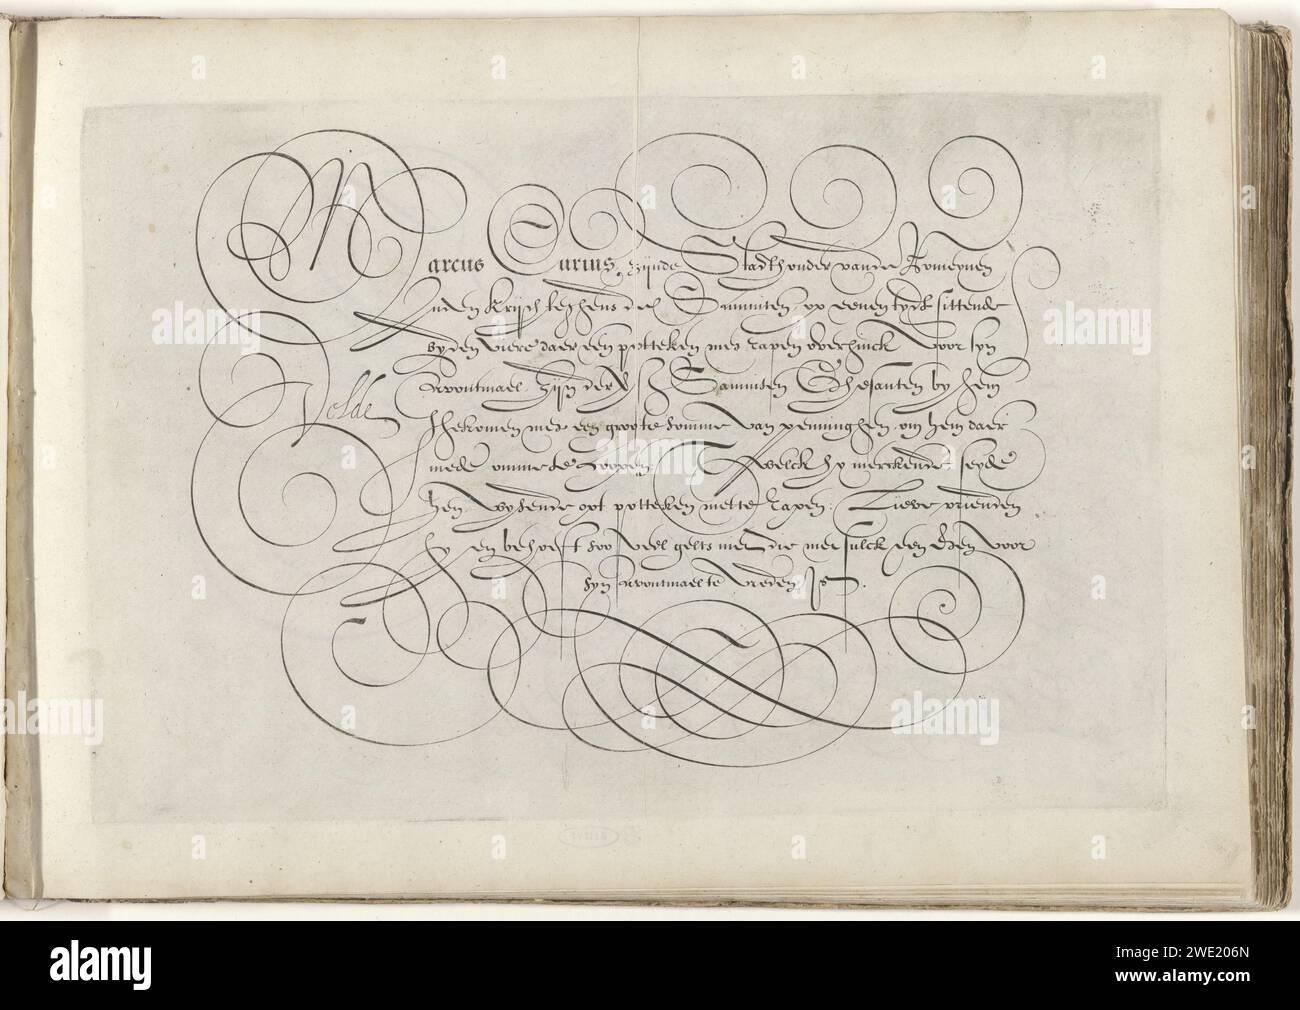 Marcus Curius, zijnde Stadthouder van de Romeynen
Inden krijch teghens de Samniten, op eenen tydt sittende
byden viere daer een potteken met rapen over hinck voor syn
avontmael, zijn der Samniten Ghesanten by hem
ghekomen met een groote somme van penninghen, om hem daer
mede omme te coopen: Twelck hy merckende seyde
hen, wysende opt potteken mette rapen: Lieve vrienden
hy en behoeft soo veel gelts niet, die met sulck een eten voor
syn avontmael te vreden is.
Velde
alamy
Image ID: 2WE206N
www.alamy.com